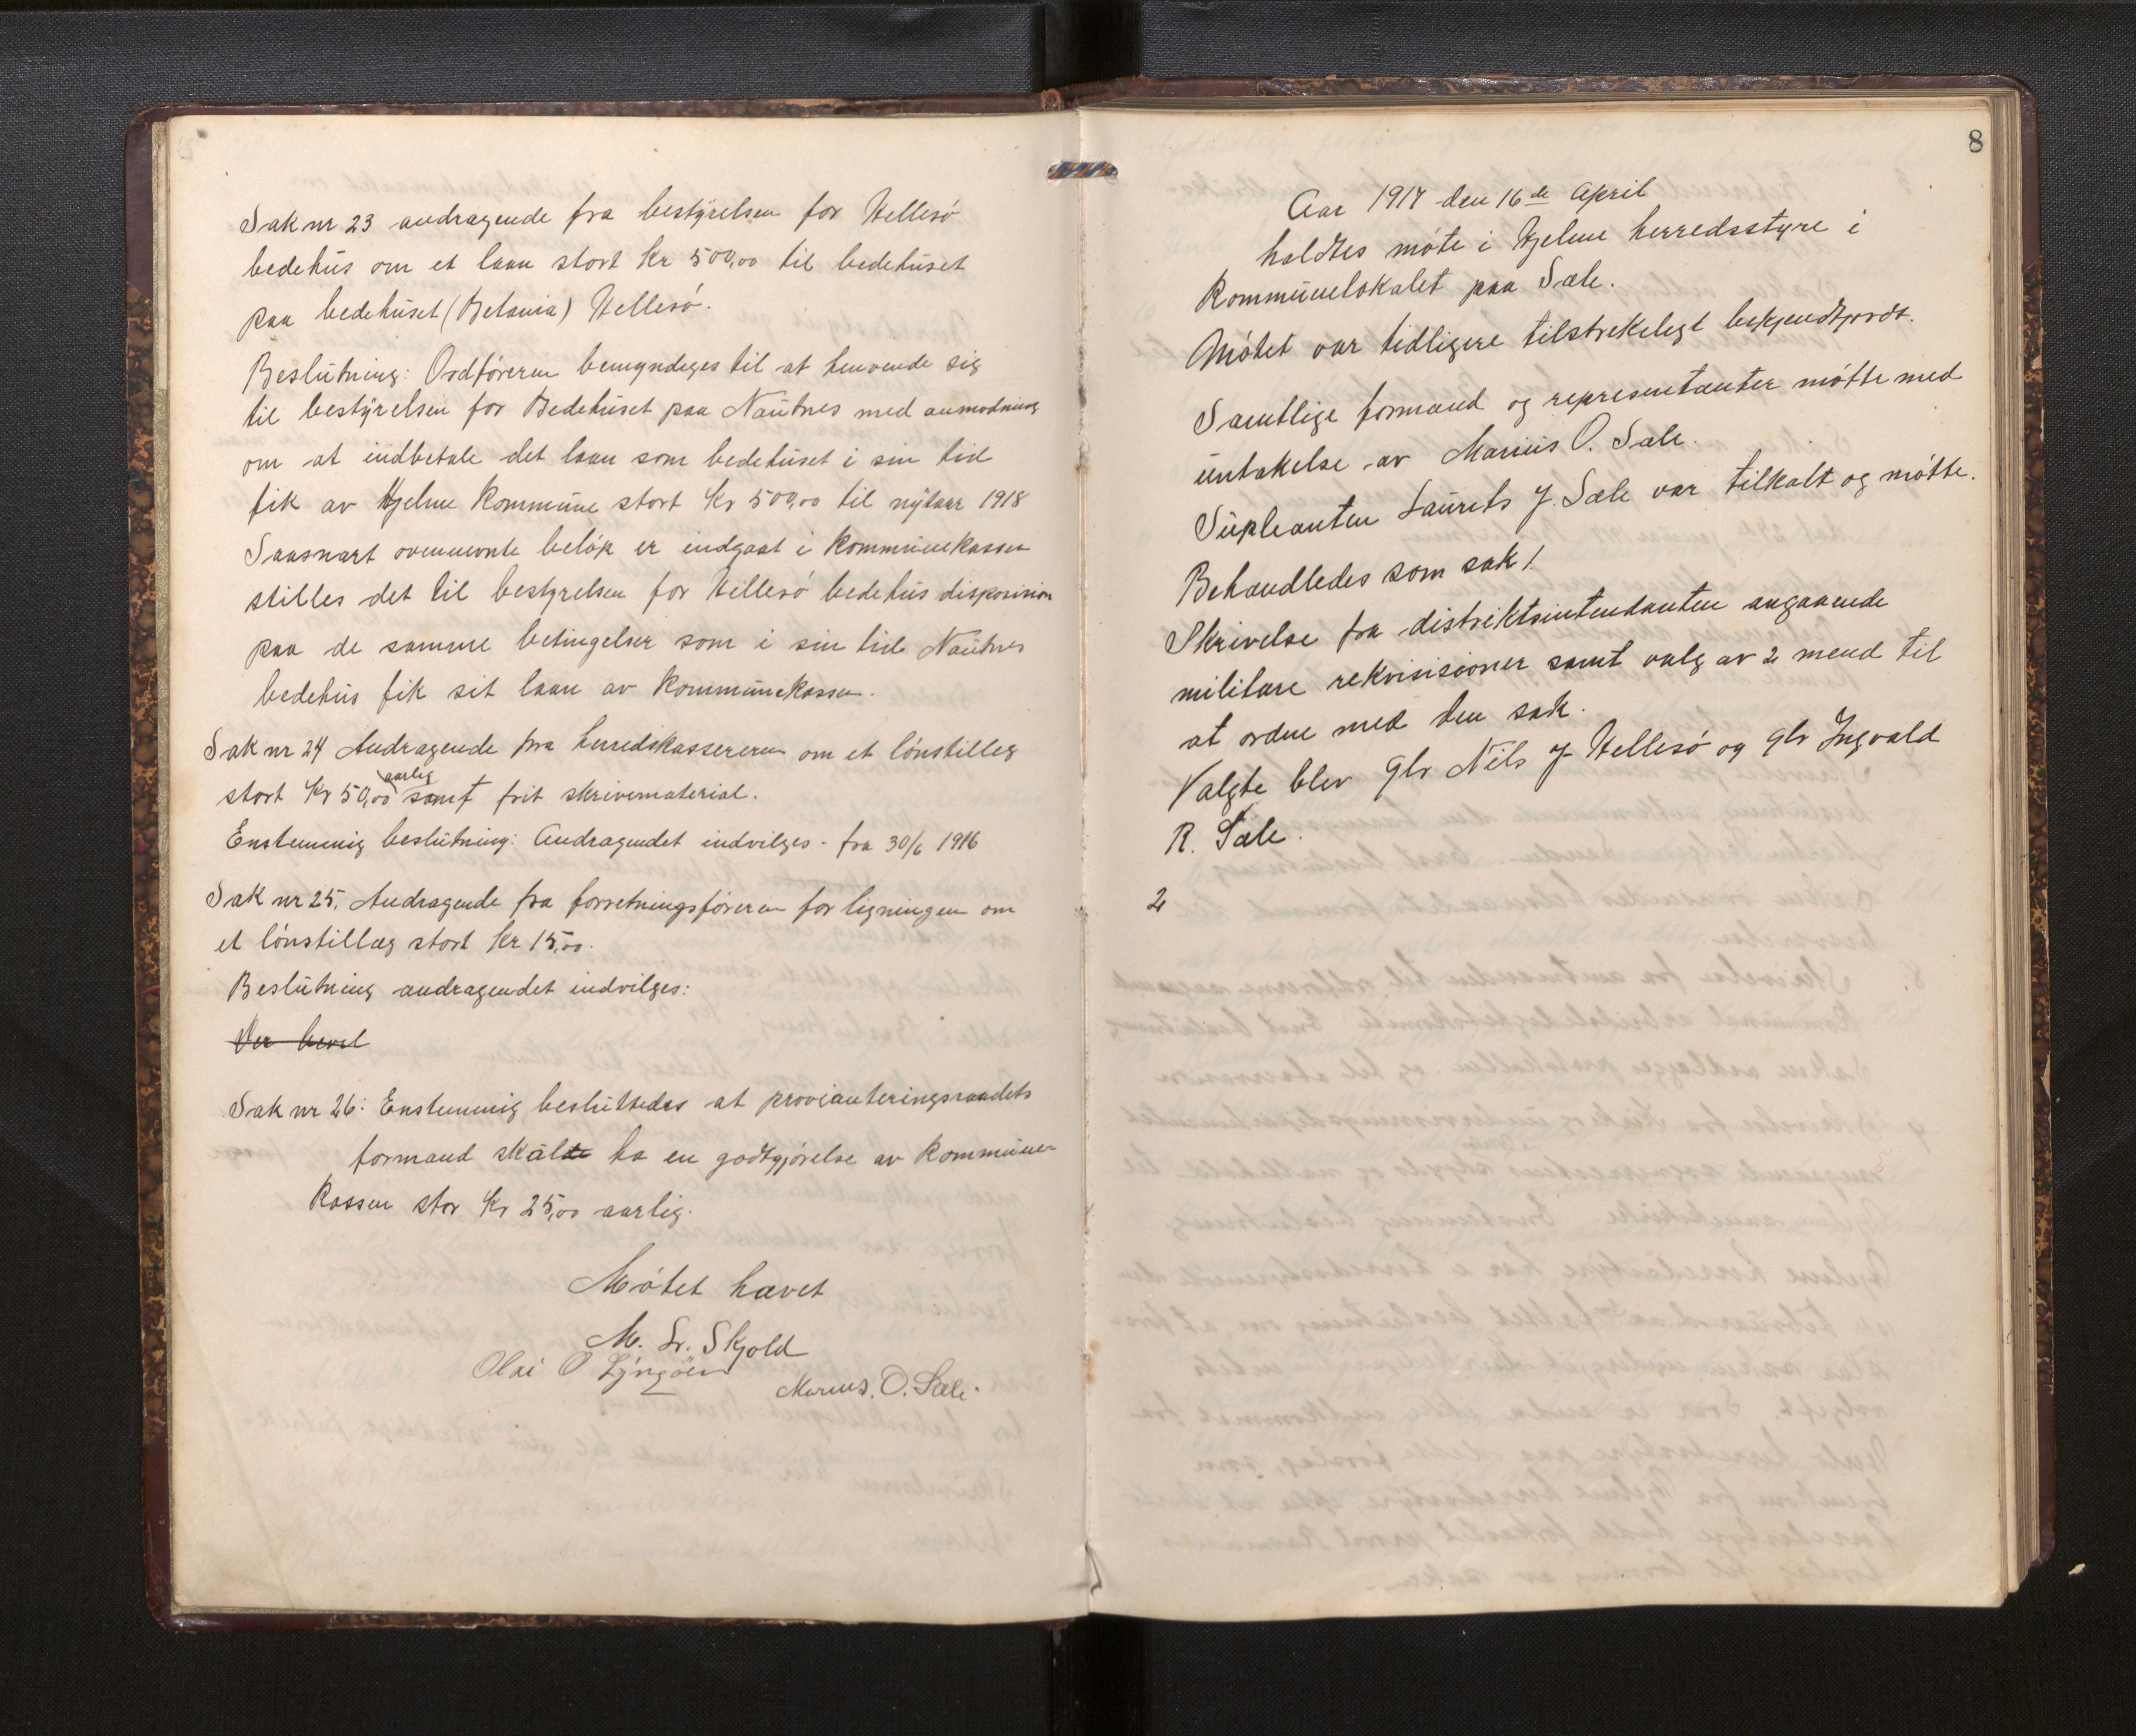 Sak nr 23 andragende fra bestyrelsen for Hellesö
bedehus om et laan stort Kr 500,00 til bedehuset
paa bedehuset (Betania) Hellesö.
Beslutning: Ordföreren bemyndiges til at henvende sig
til bestyrelsen for Bedehuset paa Nautnes med anmodning
om at indbetale det laan som bedehuset i sin tid
fik av Hjelme Kommune stort Kr 500,00 til nytaar 1918
Saasnart ovennevnte belöp er indgaat i Kommunekassen
stilles det til bestyrelsen for Hellesö bedehus disposision
paa de samme betingelser som i sin tid Nautnes
bedehus fik sit laan av Kommunekassen.
Sak nr 24 Andragende fra herredskassereren om et lönstilleg
stort Kr 50,00 aarlig samt frit skrivematerial.
Enstemmig beslutning: Andragendet indvilges - fra 30/6 1916
Sak nr 25. Andragende fra forretningsföreren for ligningen om
et lönstillæg stort Kr 15,00.
Beslutning andragendet indvilges:
Sak nr 26: Enstemmig besluttedes at provianteringsraadets
formand skal ha en godtgjörelse av Kommune-
Kassen stor Kr 25,00 aarlig.
Mötet hævet
M. Sr. Skjold
Olai O Lyngöen
Marius. O. Sæle.
8
Aar 1917 den 16de April
holdtes möte i Hjelme herredsstyre i
Kommunelokalet paa Sæle.
Mötet var tidligere tilstrekelegt bekjendtgjordt.
Samtlige formænd og representanter mötte med
untakelse av Marius O. Sæle.
Supleanten Laurits J. Sæle var tilkalt og mötte.
Behandledes som sak 1.
Skrivelse fra distriktsintendanten angaaende
militære rekvisisioner samt valg av 2 mend til
at ordne med den sak.
Valgte blev Gbr Nils J Hellesö og gbr Ingvald
R. Sæle.
2